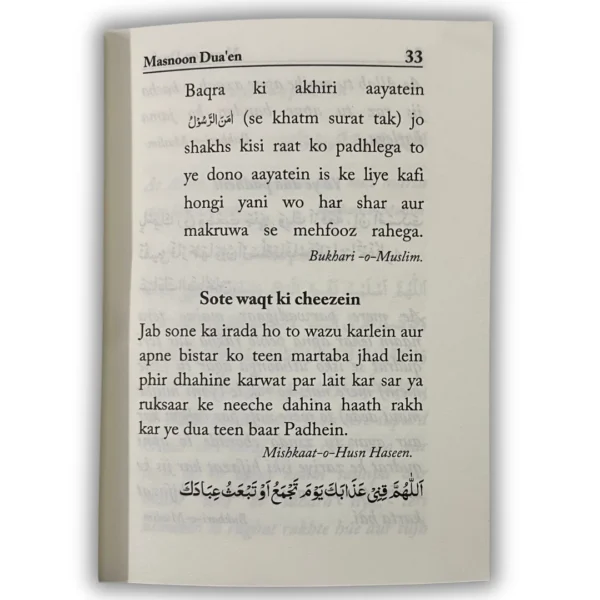 Masnoon Dua'en 33
Baqra ki akhiri aayatein
اٰمَنَ الرَّسُوْلُ (se khatm surat tak) jo
shakhs kisi raat ko padhlega to
ye dono aayatein is ke liye kafi
hongi yani wo har shar aur
makruwa se mehfooz rahega.
Bukhari -o-Muslim.
Sote waqt ki cheezein
Jab sone ka irada ho to wazu karlein aur
apne bistar ko teen martaba jhad lein
phir dhahine karwat par lait kar sar ya
ruksaar ke neeche dahina haath rakh
kar ye dua teen baar Padhein.
Mishkaat-o-Husn Haseen.
اَللّٰهُمَّ قِنِيْ عَذَابَكَ يَوْمَ تَجْمَعُ اَوْ تَبْعَثُ عِبَادَكَ